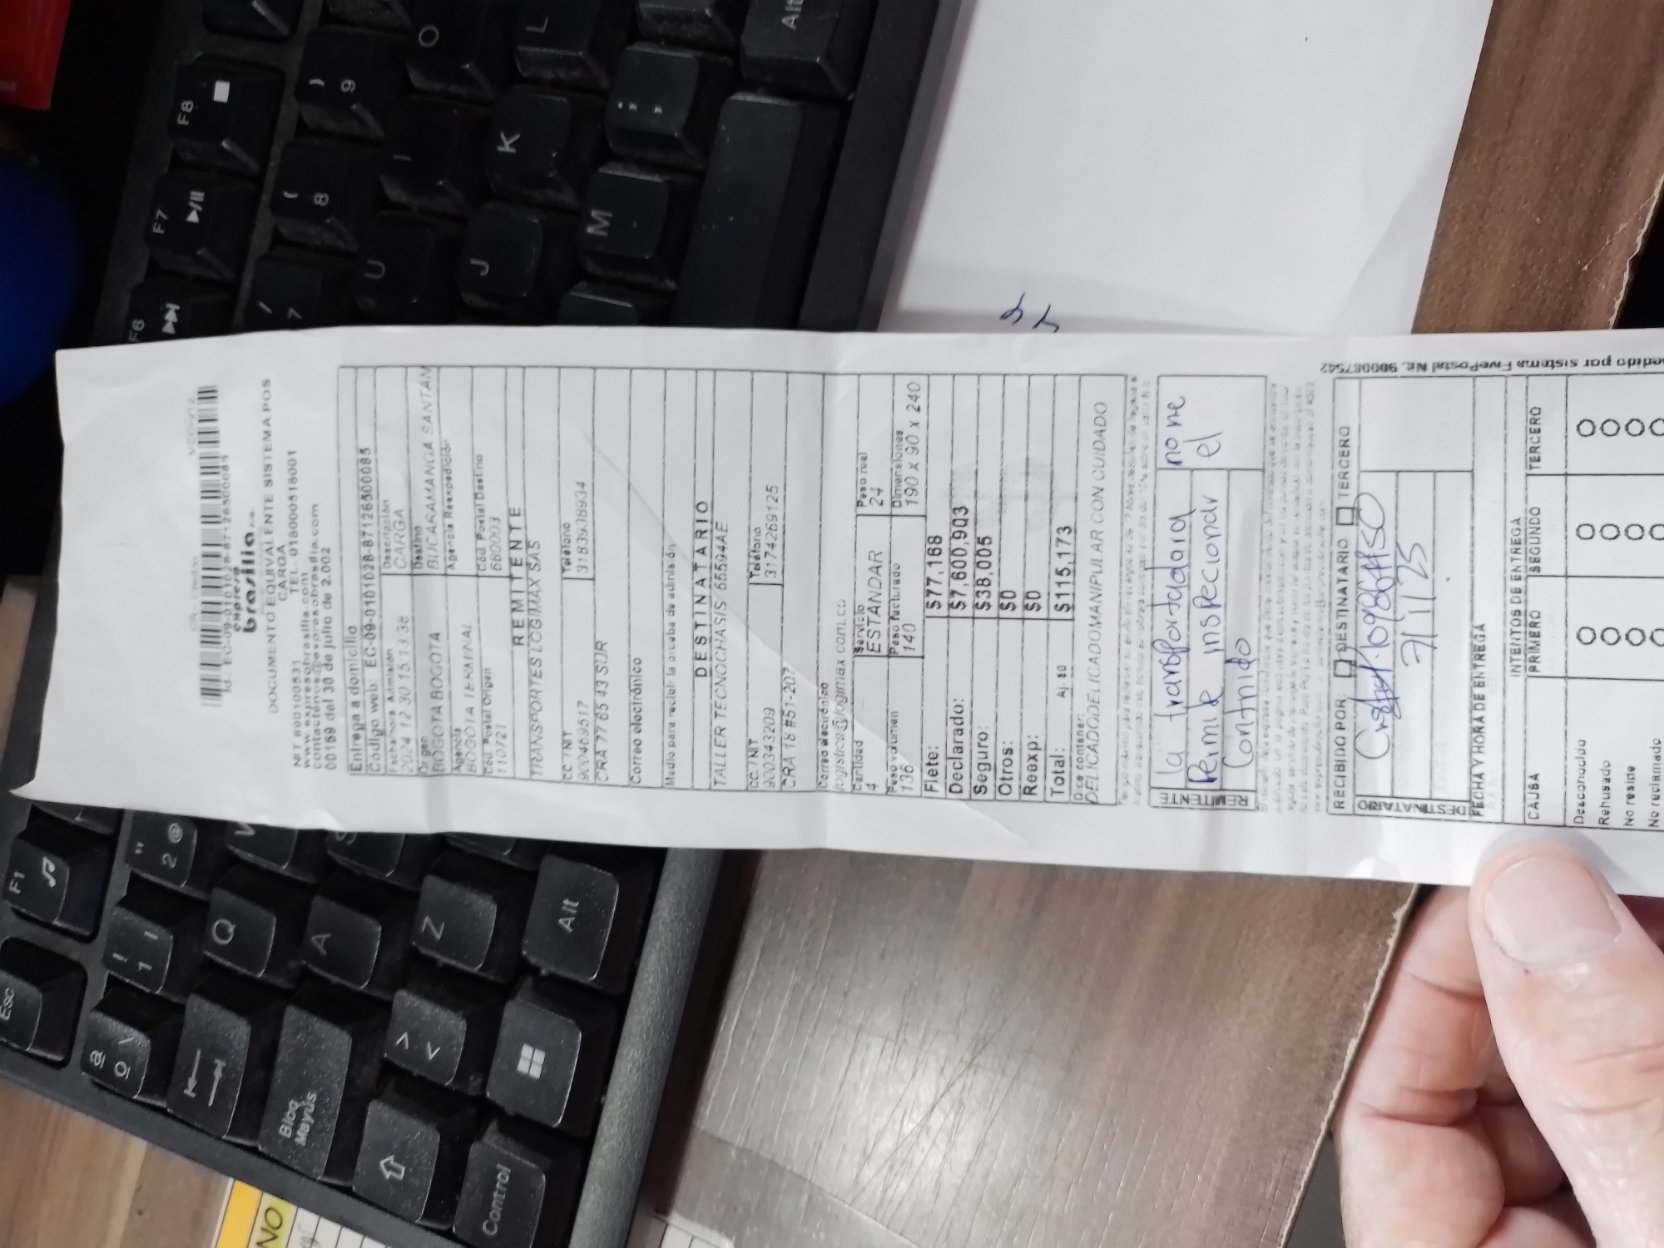 Id: EC-09-0101028-87126500085
expreso
brasilia
DOCUMENTO EQUIVALENTE SISTEMA POS
CARGA
NIT 890100531 TEL. 018000518001
www.expresobrasilia.com
contactenos@expresobrasilia.com
00159 del 30 de julio de 2.002
Entrega a domicilio
Código web: EC-09-0101028-87126500085
Fecha/hora Admisión Descripción
2024 12 30 15 13 38 CARGA
Origen Destino
BOGOTA BOGOTA BUCARAMANGA SANTAN
Agencia Agencia Reexpedición
BOGOTA TERMINAL
Cód. Postal Origen Cód. Postal Destino
110721 680003
REMITENTE
TRANSPORTES LOGIMAX SAS
CC / NIT Teléfono
900469517 3183938934
CRA 77 65 43 SUR
Correo electrónico
Medio para recibir la prueba de admisión
DESTINATARIO
TALLER TECNOCHASIS 66594AE
CC / NIT Teléfono
900343209 3174269125
CRA 18 #51-207
Correo electrónico
logistica@logimax.com.co
Cantidad Servicio Peso real
4 ESTANDAR 24
Peso volumen Peso facturado Dimensiones
136 140 190 x 90 x 240
Flete: $77,168
Declarado: $7,600,903
Seguro: $38,005
Otros: $0
Reexp: $0
Total: $115,173
Dice contener:
DELICADODELICADOMANIPULAR CON CUIDADO
REMITENTE
la transportadora no me
Permite inspecionar el
Contnido
RECIBIDO POR DESTINATARIO TERCERO
DESTINATARIO
FECHA Y HORA DE ENTREGA
INTENTOS DE ENTREGA
CAUSA PRIMERO SEGUNDO TERCERO
Desconocido
Rehusado
No reside
No reclamado
por sistema FivePostal Nit. 900087542
Esc
F1
F6
F7
F8
! 1
" 2 @
/ 7
( 8
) 9
ª º \
Q
W
U
I
O
A
S
J
K
L
Z
M
; ,
> <
Bloq Mayús
Control
Alt
Alt
NO